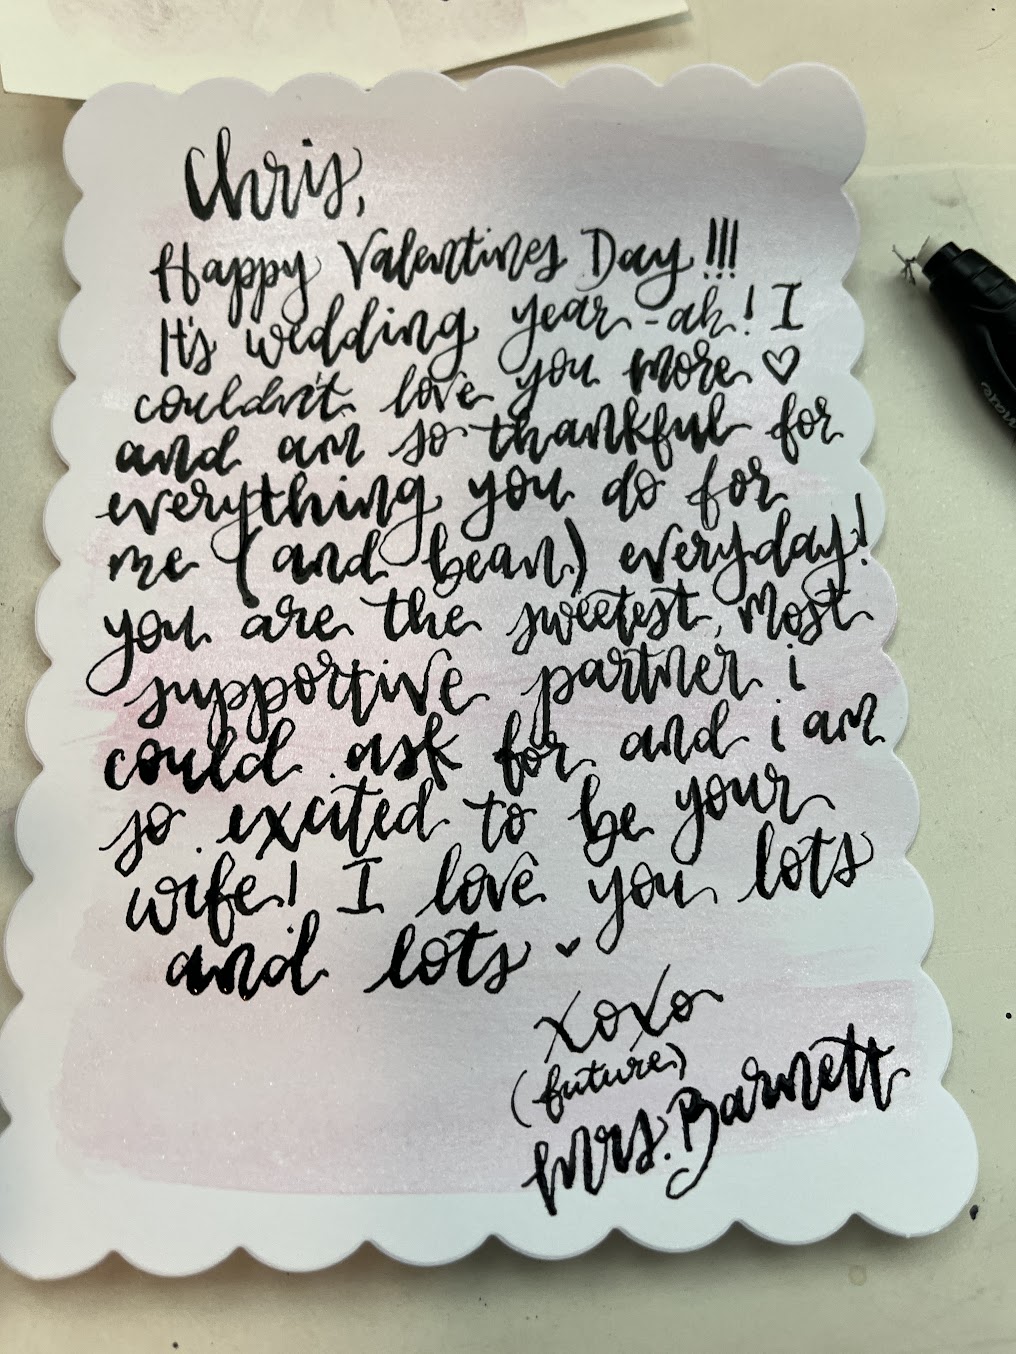 Chris,
Happy Valentines Day!!!
It's wedding year-ah! I
couldn't love you more ♡
and am so thankful for
everything you do for
me (and bean) everyday!
you are the sweetest, most
supportive partner i
could ask for and i am
so excited to be your
wife! I love you lots
and lots ♥
xoxo
(future)
Mrs. Barnett